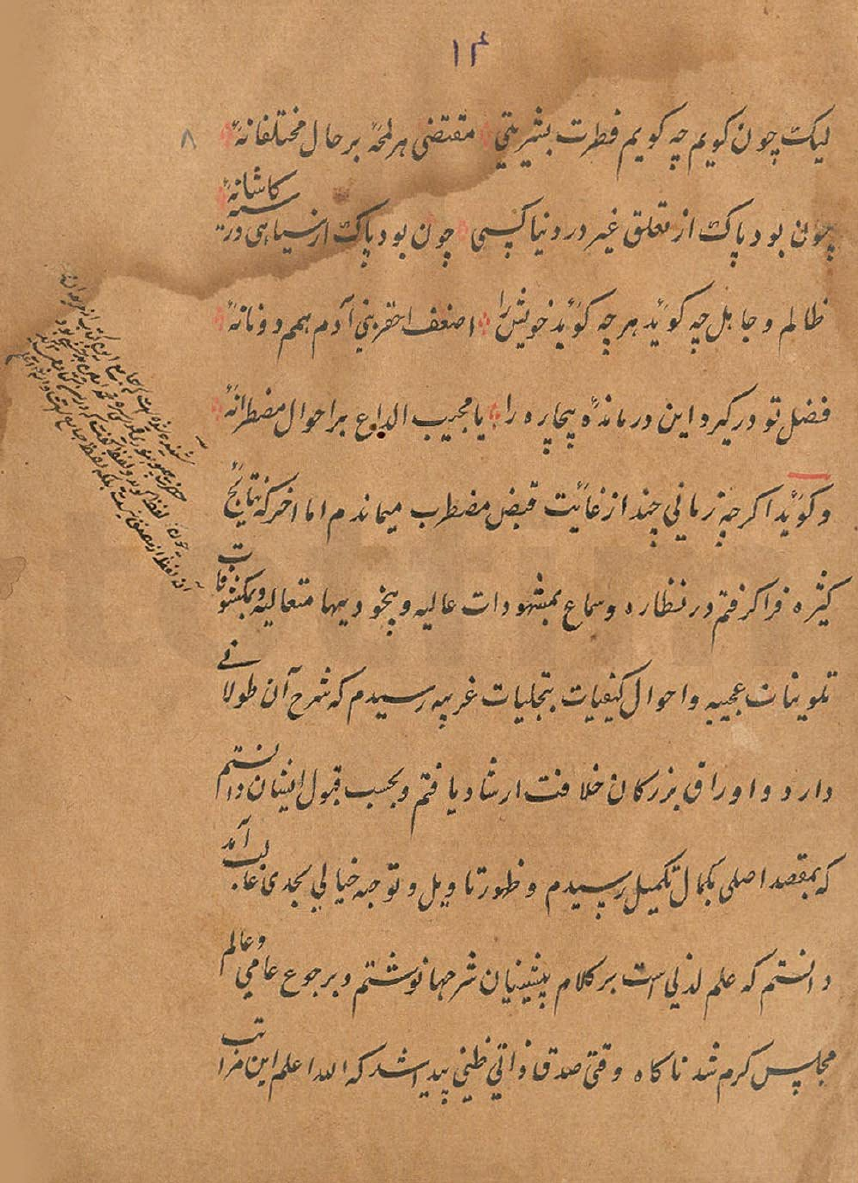 ۱۴
لیک چون کویم چه کویم فطرت بشریتی مقتضی هر لمحۀ بر حال مختلفانۀ
۸
چون بود پاک از تعلق غیر در دنیا کسی چون بود پاک از سیاهی در سیه کاشانۀ
ظالم و جاهل چه کوید هر چه کوید خویش را اضعف احقر بنی آدم همم دونانۀ
فضل تو در کیرد این درماندۀ بیچاره را یا مجیب الداع بر احوال مضطرانۀ
و کوید اکرچه زمانی چند از غایت قبض مضطرب میماندم اما اخر که نتایج
کثیره فرا کرفتم در نظاره و سماع بمشهودات عالیه و بیخودیها متعالیه و بمکشوفات
تلوینات عجیبه و احوال کیفیات بتجلیات غریبه رسیدم که شرح آن طولانی
دارد و اوراق بزرکان خلافت ارشاد یافتم و بحسب قبول ایشان دانستم
که بمقصد اصلی بکمال تکمیل رسیدم و ظهور تاویل و توجه خیالی بحدی غالب آمد
دانستم که علم لدنی است بر کلام پیشینیان شرحها نوشتم و برجوع عامی و عالم
مجلس کرم شد ناکاه وقتی صدقا ذاتی ظنی پیدا شد که الله اعلم این مراتب